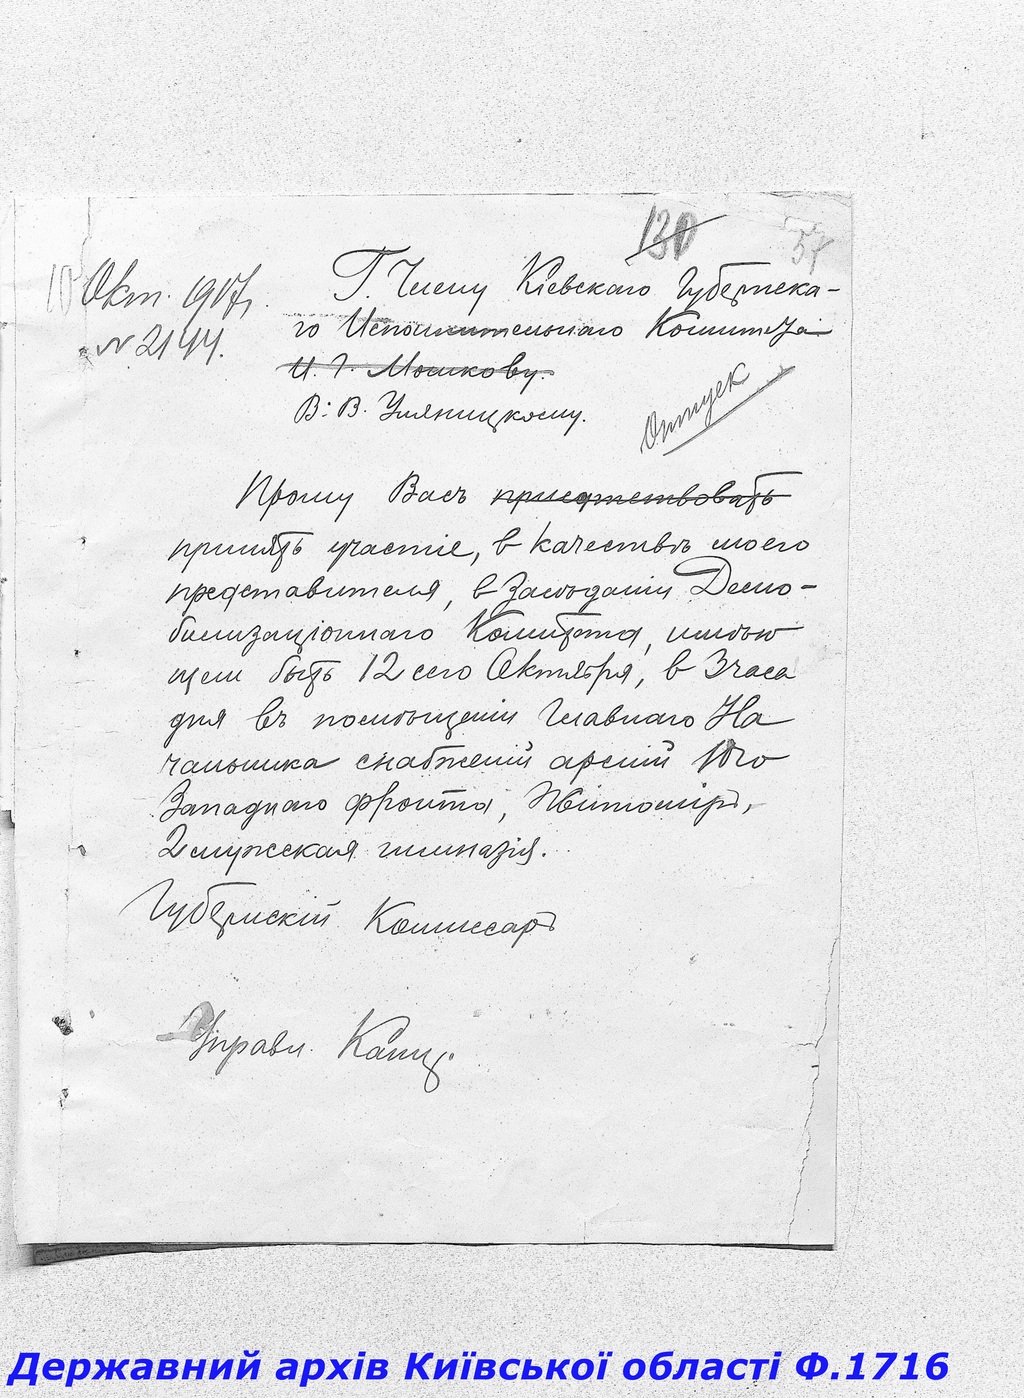 130 57
10 Окт. 1917 г.
N 2194.
Г. Члену Кіевскаго Губернска-
го Исполнительнаго Комитета
И. Г. Мошкову.
В. В. Уляницкому.
Отпуск
Прошу Васъ присутствовать
принять участіе, в качествѣ моего
представителя, в Засѣданіи Демо-
билизаціоннаго Комитета, имѣю
щем быть 12 сего Октября, в 3 часа
дня въ помѣщеніи Главнаго На
чальника снабженій армій Юго
Западнаго фронта, Житомиръ,
2 мужская гимназія.
Губернскій Комиссаръ
Управл. Канц.
Державний архів Київської області Ф.1716